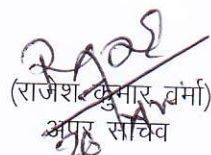 (राजेश कुमार वर्मा)
अपर सचिव